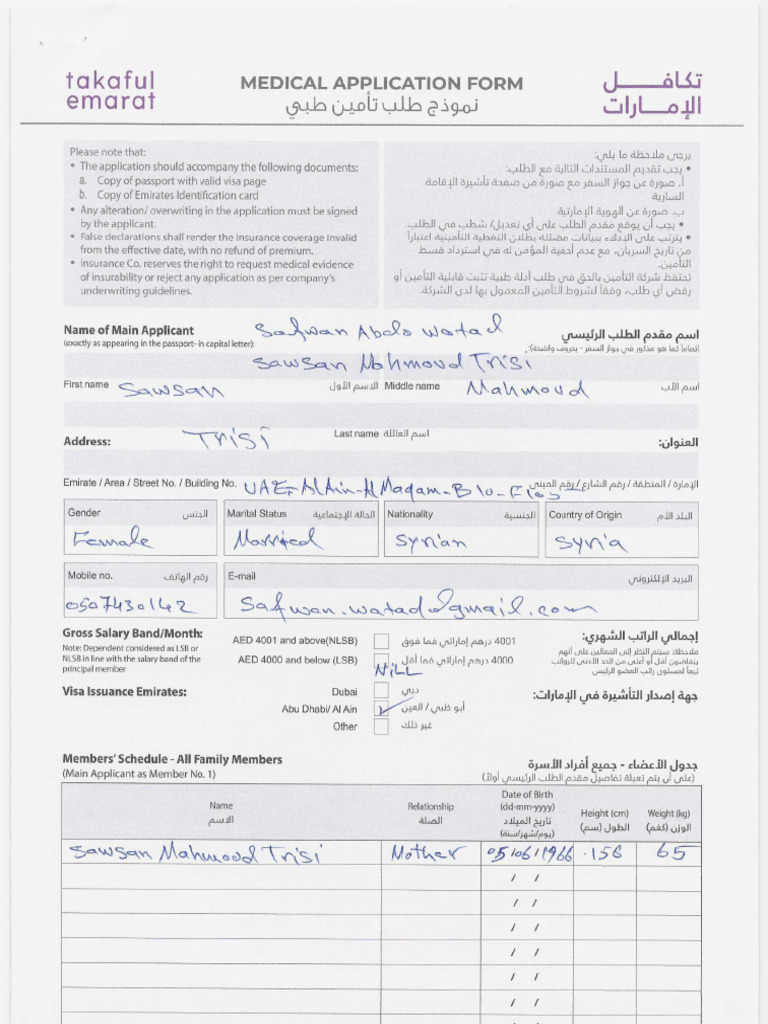 takaful
emarat
MEDICAL APPLICATION FORM
نموذج طلب تأمين طبي
تكافل
الإمارات
Please note that:
• The application should accompany the following documents:
a. Copy of passport with valid visa page
b. Copy of Emirates Identification card
• Any alteration/ overwriting in the application must be signed
by the applicant.
• False declarations shall render the insurance coverage invalid
from the effective date, with no refund of premium.
• Insurance Co. reserves the right to request medical evidence
of insurability or reject any application as per company's
underwriting guidelines.
يرجى ملاحظة ما يلي:
• يجب تقديم المستندات التالية مع الطلب:
أ. صورة عن جواز السفر مع صورة من صفحة تأشيرة الإقامة
السارية
ب. صورة عن الهوية الإماراتية
• يجب أن يوقع مقدم الطلب على أي تعديل/ شطب في الطلب.
• يترتب على الإدلاء ببيانات مضللة بطلان التغطية التأمينية اعتباراً
من تاريخ السريان، مع عدم أحقية المؤمن له في استرداد قسط
التأمين.
تحتفظ شركة التأمين بالحق في طلب أدلة طبية تثبت قابلية التأمين أو
رفض أي طلب، وفقاً لشروط التأمين المعمول بها لدى الشركة.
Name of Main Applicant Safwan Abdo Watad اسم مقدم الطلب الرئيسي
(exactly as appearing in the passport- in capital letter): (تماماً كما هو مذكور في جواز السفر - بحروف واضحة):
Sawsan Mahmoud Trisi
First name Sawsan الاسم الأول Middle name Mahmoud اسم الأب
Address: Trisi Last name اسم العائلة العنوان:
Emirate / Area / Street No. / Building No. UAE-AlAin-Al Maqam-B 10- الإمارة / المنطقة / رقم الشارع / رقم المبنى
Gender الجنس Marital Status الحالة الإجتماعية Nationality الجنسية Country of Origin البلد الأم
Female Married Syrian Syria
Mobile no. رقم الهاتف E-mail البريد الإلكتروني
0507430142 Safwan.watad@gmail.com
Gross Salary Band/Month: إجمالي الراتب الشهري:
Note: Dependent considered as LSB or
NLSB in line with the salary band of the
principal member
AED 4001 and above(NLSB) 4001 درهم إماراتي فما فوق
AED 4000 and below (LSB) 4000 درهم إماراتي فما أقل
NiLL
ملاحظة: سيتم النظر إلى المعالين على أنهم
يتقاضون أقل أو أعلى من الحد الأدنى للرواتب
تبعاً لمستوى راتب العضو الرئيسي
Visa Issuance Emirates: جهة إصدار التأشيرة في الإمارات:
Dubai دبي
Abu Dhabi/ Al Ain ✓ أبو ظبي / العين
Other غير ذلك
Members' Schedule - All Family Members جدول الأعضاء - جميع أفراد الأسرة
(Main Applicant as Member No. 1) (على أن يتم تعبئة تفاصيل مقدم الطلب الرئيسي أولاً)
Name الاسم
Relationship الصلة
Date of Birth
(dd-mm-yyyy)
تاريخ الميلاد
(يوم/شهر/سنة)
Height (cm)
الطول (سم)
Weight (kg)
الوزن (كغم)
Sawsan Mahmoud Trisi Mother 05/06/1966 156 65
/ /
/ /
/ /
/ /
/ /
/ /
/ /